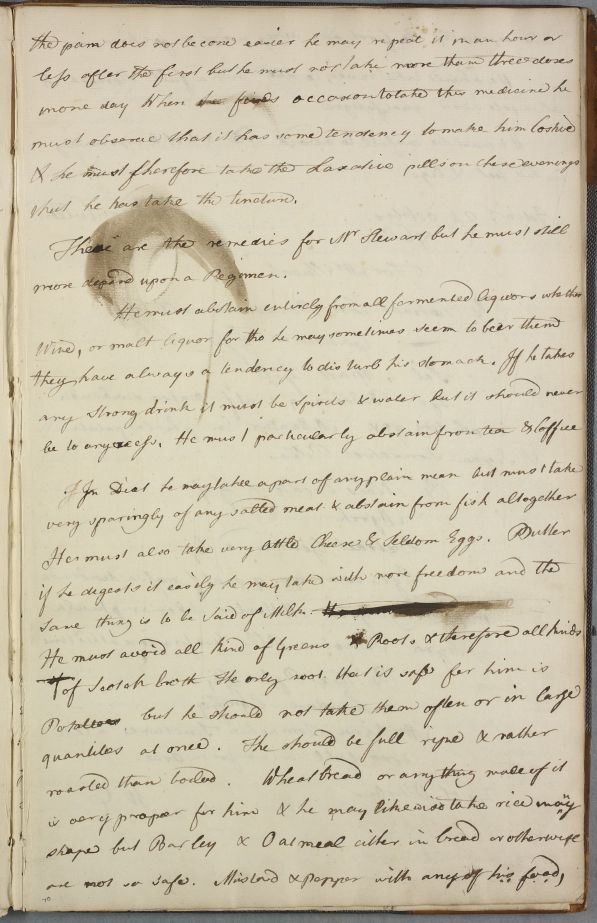 the pain does not become easier he may repeat it in an hour or
less after the first but he must not take more than three doses
in one day When he finds occasion to take this medicine he
must observe that it has some tendency to make him Costive
& he must therefore take the Laxative pills on these evenings
that he has take the tincture.
These are the remedies for Mr Stewart but he must still
more depend upon a Regimen.
He must abstain entirely from all farmented liquors whether
Wine, or malt liquor for tho he may sometimes seem to bear them
they have always a tendency to disturb his stomach. If he takes
any strong drink it must be Spirits & water but it should never
be to any excess. He must particularly abstain from tea & Coffee
In Diet he may take a part of any plain mean but must take
very sparingly of any salted meat & abstain from fish altogether
He must also take very little Cheese & Seldom Eggs. Butter
if he digests it easily he may take with more freedom and the
same thing is to be said of Milk
He must avoid all kind of Greens & Roots & therefore all kinds
of Scotch broth The only root that is safe for him is
Potatoes but he should not take them often or in large
quantities at once. The should be full ripe & rather
roasted than boiled. Wheat bread or any thing made of it
is very proper for him & he may likewise take rice in any
shape but Barley & Oatmeal either in bread or otherwise
are not so safe. Mustard & pepper with any of his food,